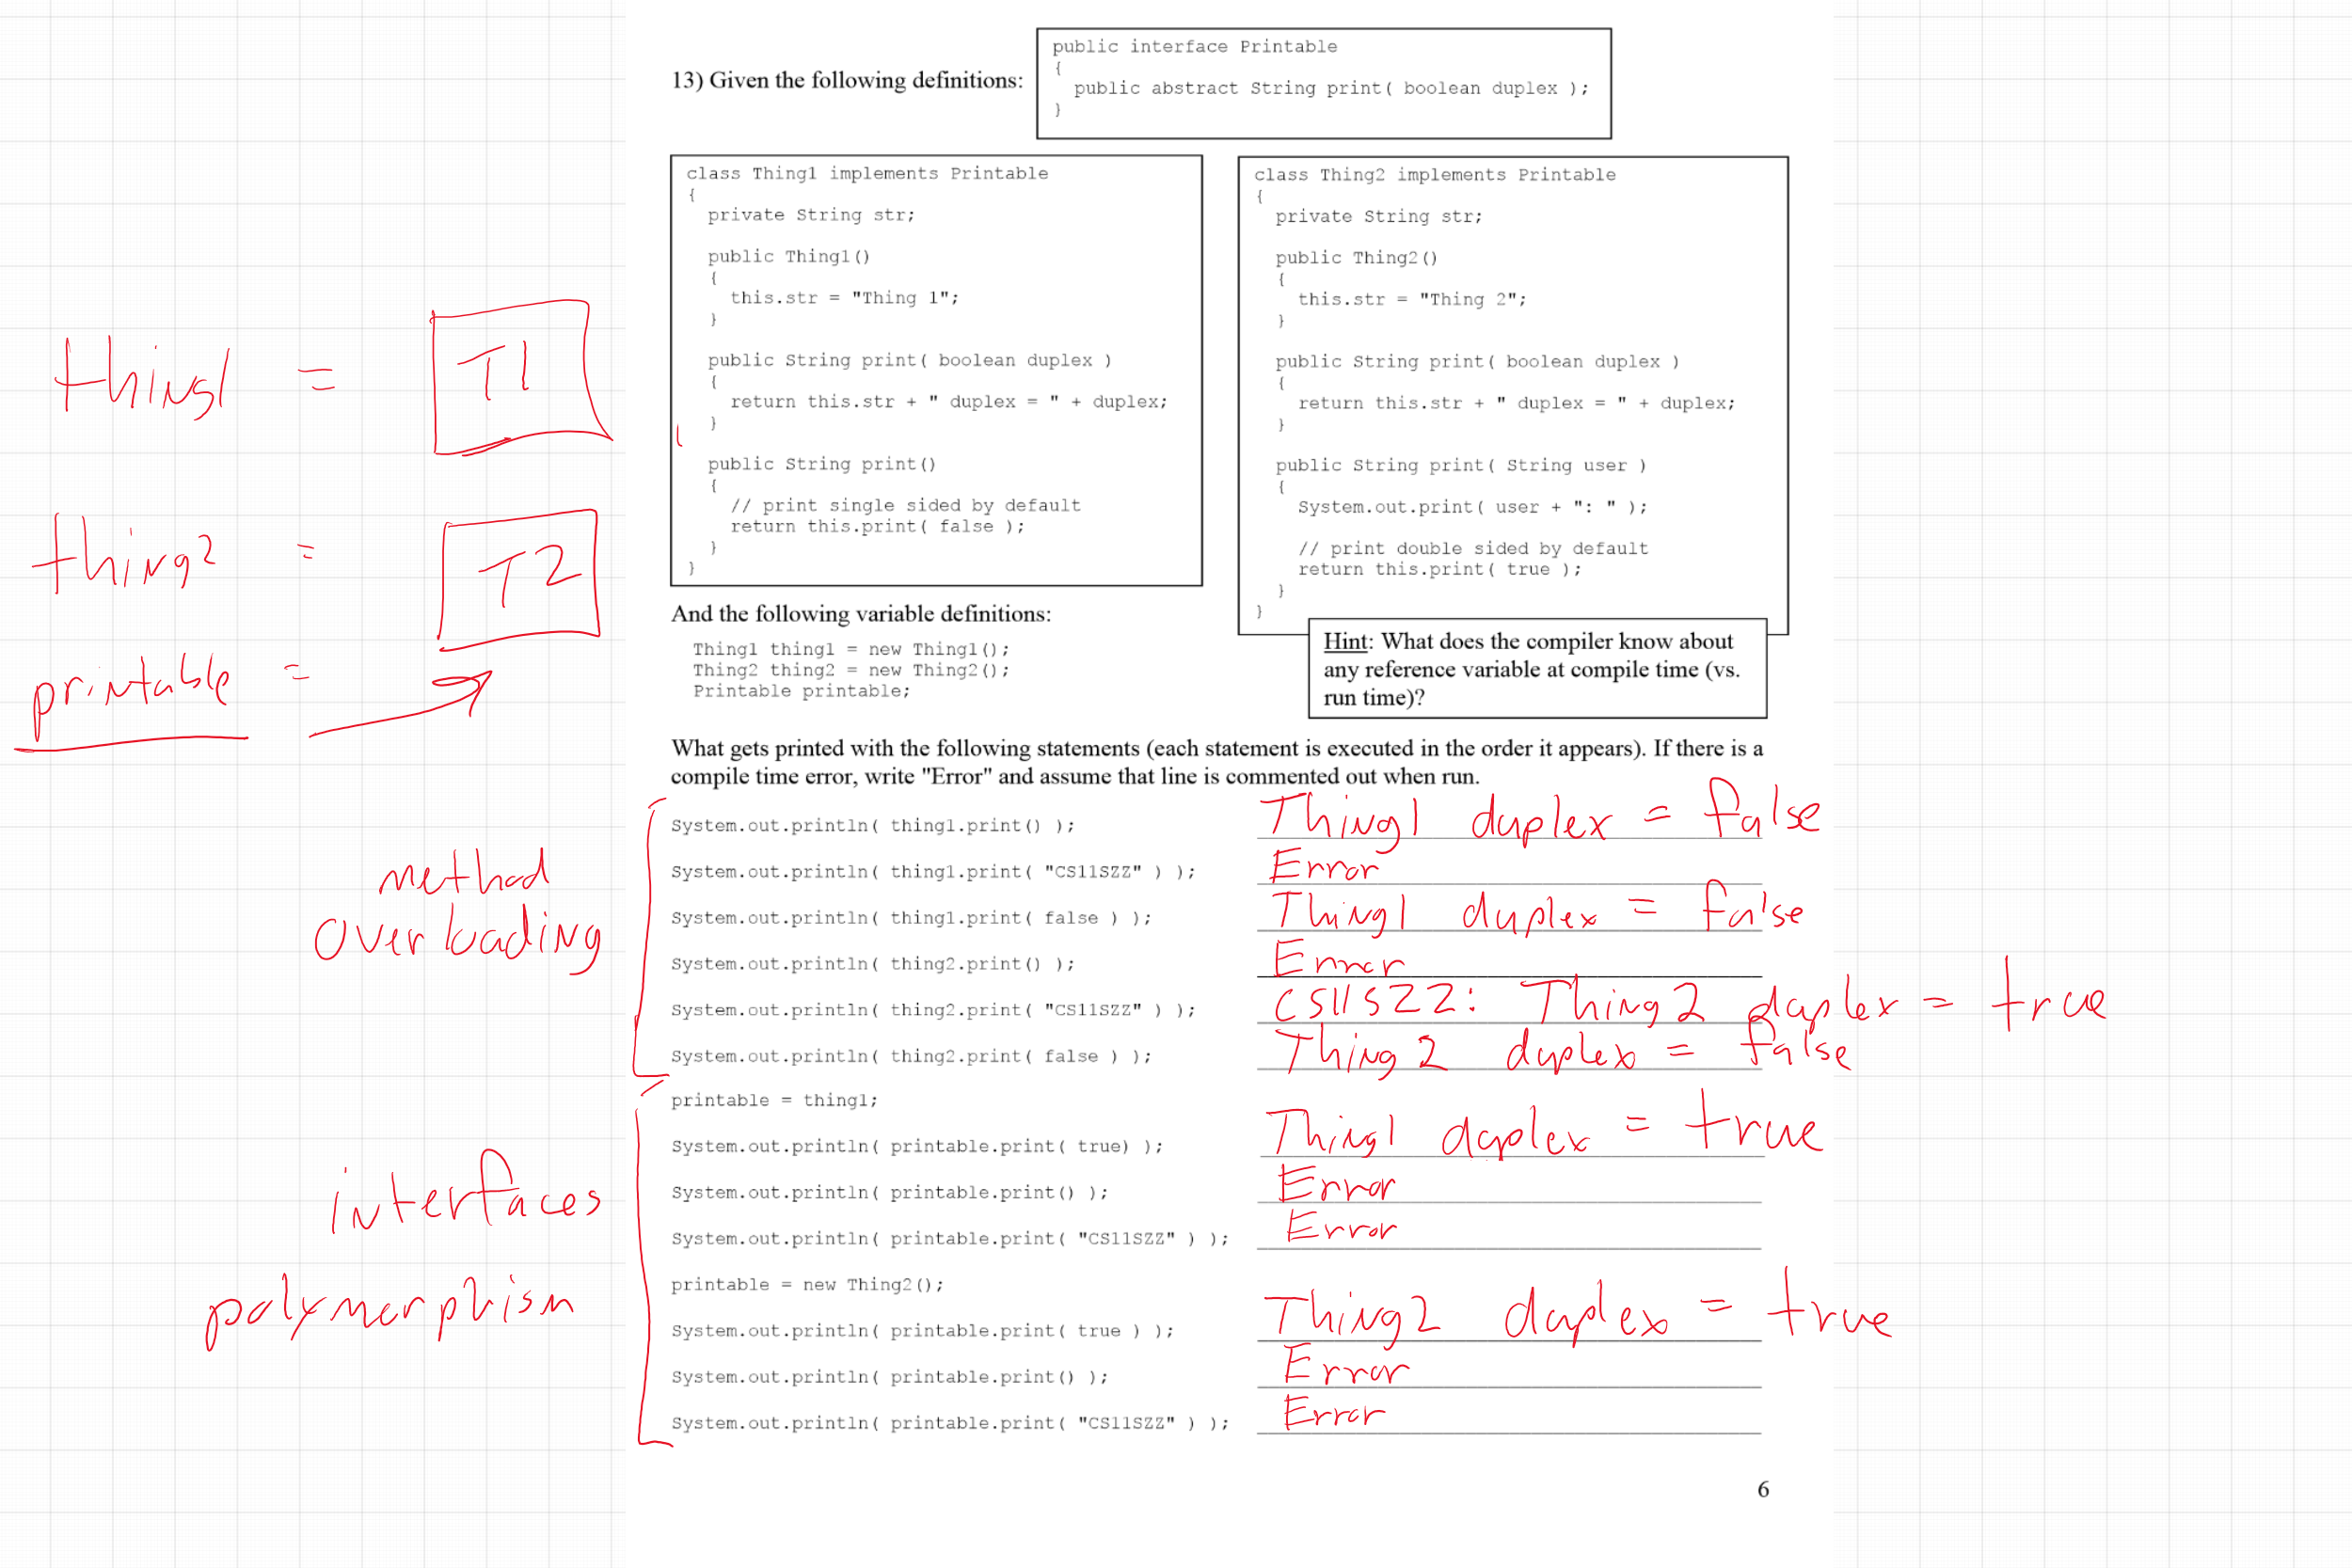 13) Given the following definitions:
public interface Printable
{
public abstract String print( boolean duplex );
}
class Thing1 implements Printable
{
private String str;
public Thing1()
{
this.str = "Thing 1";
}
public String print( boolean duplex )
{
return this.str + " duplex = " + duplex;
}
public String print()
{
// print single sided by default
return this.print( false );
}
}
class Thing2 implements Printable
{
private String str;
public Thing2()
{
this.str = "Thing 2";
}
public String print( boolean duplex )
{
return this.str + " duplex = " + duplex;
}
public String print( String user )
{
System.out.print( user + ": " );
// print double sided by default
return this.print( true );
}
}
thing1 = T1
thing2 = T2
printable =
And the following variable definitions:
Thing1 thing1 = new Thing1();
Thing2 thing2 = new Thing2();
Printable printable;
Hint: What does the compiler know about
any reference variable at compile time (vs.
run time)?
What gets printed with the following statements (each statement is executed in the order it appears). If there is a
compile time error, write "Error" and assume that line is commented out when run.
method
overloading
System.out.println( thing1.print() ); Thing1 duplex = false
System.out.println( thing1.print( "CS11SZZ" ) ); Error
System.out.println( thing1.print( false ) ); Thing1 duplex = false
System.out.println( thing2.print() ); Error
System.out.println( thing2.print( "CS11SZZ" ) ); CS11SZZ: Thing2 duplex = true
System.out.println( thing2.print( false ) ); Thing2 duplex = false
interfaces
polymorphism
printable = thing1;
System.out.println( printable.print( true) ); Thing1 duplex = true
System.out.println( printable.print() ); Error
System.out.println( printable.print( "CS11SZZ" ) ); Error
printable = new Thing2();
System.out.println( printable.print( true ) ); Thing2 duplex = true
System.out.println( printable.print() ); Error
System.out.println( printable.print( "CS11SZZ" ) ); Error
6